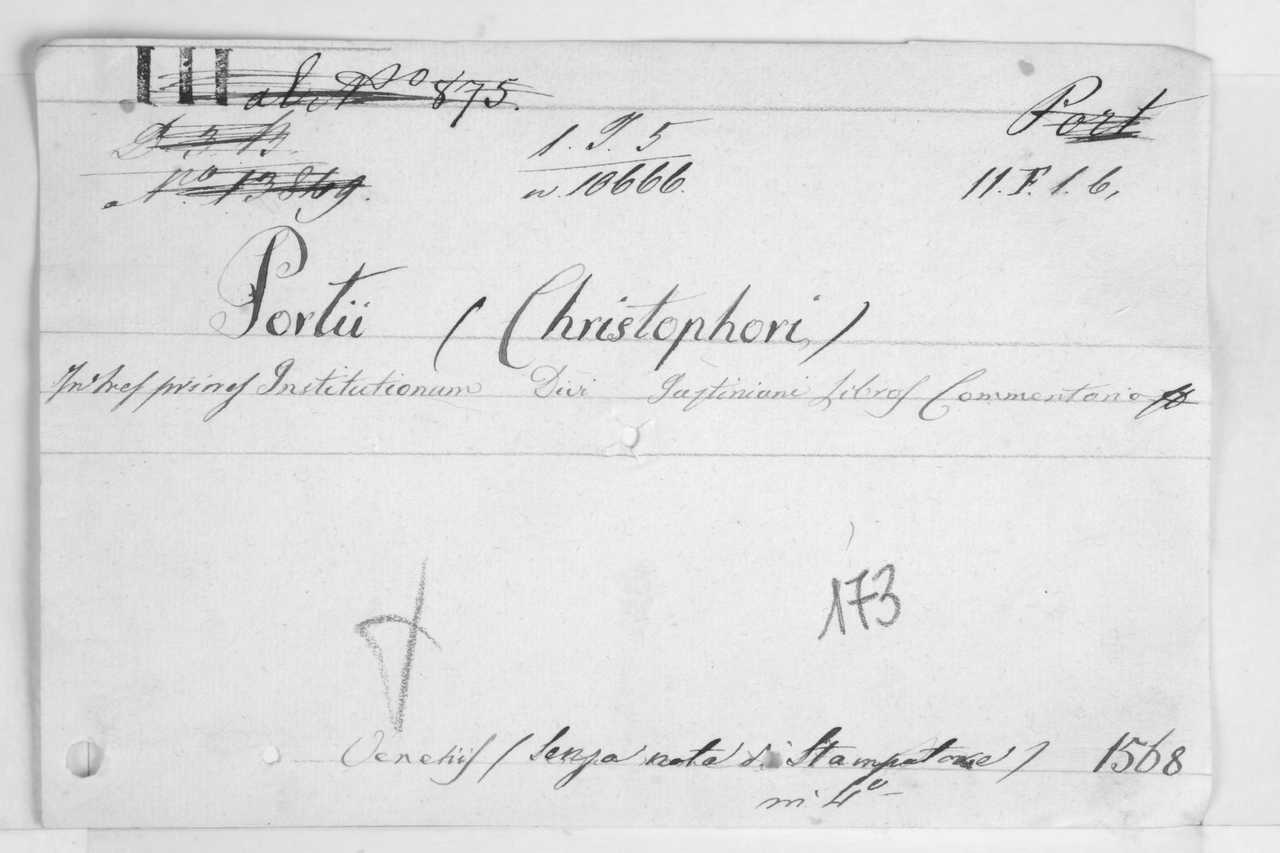 III al N.º 875.
Port
D. 3. B.
1. G. 5
N.º 13849.
n. 10666.
11. F. 1. 6,
Portii (Christophori)
In tres primes Institutionum Divi Justiniani Libros Commentario
173
Venetiis (Senza nota di Stampatore) 1568
in 4º